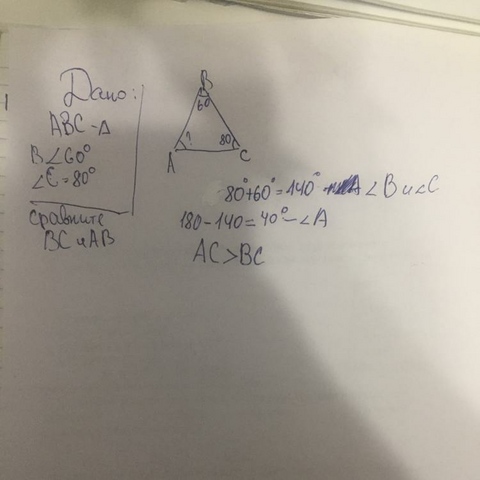 Дано:
ABC - Δ
B∠60°
∠C=80°
сравните
BC и AB
B
60
?
80
A
C
80°+60°=140° - ∠B и ∠C
180-140=40° - ∠A
AC>BC